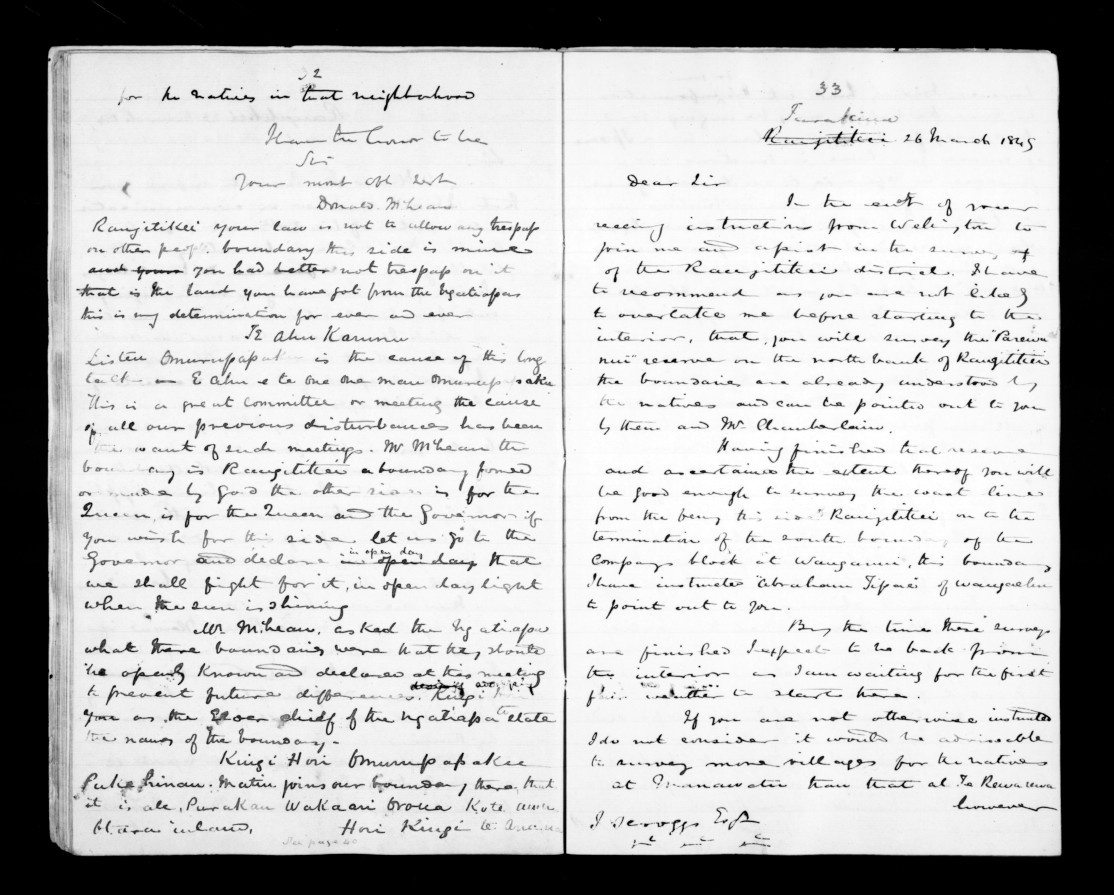 32
for the natives in that neighborhood
Have the honor to be
Sir
Your most obt Servt
Donald McLean
Rangitikei your law is not to allow any trespass
on other peop. boundary this side is mine
and yours you had better not trespass on it
that is the land you have got from the Ngatiapas
this is my determination for ever and ever
TE Ahu Karamu
Listen Omurupapak is the cause of this long
talk E Ahu e te one one man Omurupapake
This is a great committee or meeting the cause
of all our previous disturbances has been
the want of such meetings. Mr McLean the
boundary is Rangitikei a boundary formed
or made by God the other side is for the
Queen, is for the Queen and the Governor if
you wish for this side let us go to the
Governor and declare in open day that
in open day
we shall fight for it, in open day light
when the sun is shining
Mr McLean. asked the Ngatiapa
what there boundaries were that they should
be openly known and declared at this meeting
to prevent future differences. Kingi
you as the Elder chief of the Ngatiapa to state
the names of the boundary -
Kingi Hori Omurupapake
Puke hinau. Matiu joins our boundary, there, that
it is all, Purakau Wakaari Oroua
inland. Hori Kingi te
See page 40
33
Turakina
Rangitikei 26 March 1849
Dear Sir
In the event of your
receiving instructions from Wellington to
join me and assist in the survey of
of the Rangitikei district. I have
to recommend as you are not likely
to overtake me before starting to the
interior, that, you will survey the "Parewa
nui" reserve on the north bank of Rangitikei
the boundaries are already understood by
the natives and can be pointed out to you
by them and Mr Chamberlain.
Having finished that reserve
and ascertained the extent thereof you will
be good enough to survey the coast line
from the this side Rangitikei on to the
termination of the south boundary of the
Companys block at Wanganui, this boundary
I have instructed Abraham Tipae of Wangaehu
to point out to you.
By the time these surveys
are finished I expect to be back from
the interior as I am waiting for the first
to start here.
If you are not otherwise instructed
I do not consider it would be advisable
to survey more villages for the natives
at Manawatu than that at Te Rewarewa
however
J Scroggs Esqr